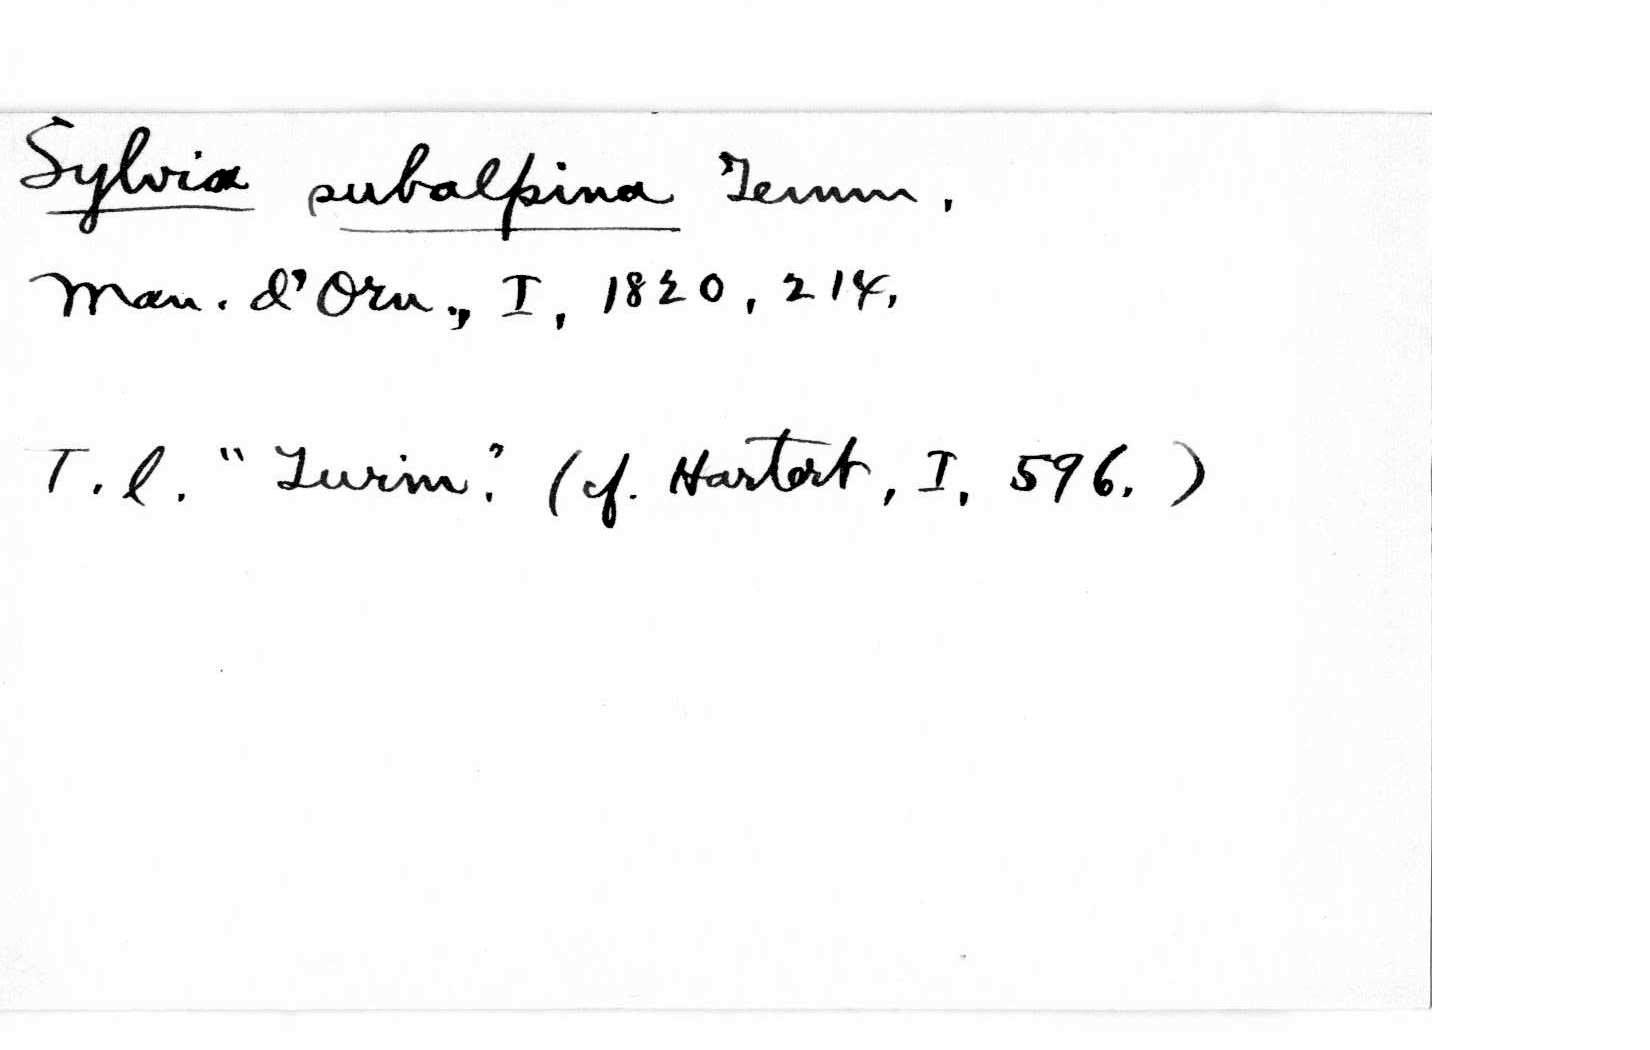 Sylvia subalpina Temm,
Man. d'Orn., I, 1820, 214,
T. l. "Turin". (cf. Hartert, I, 596.)